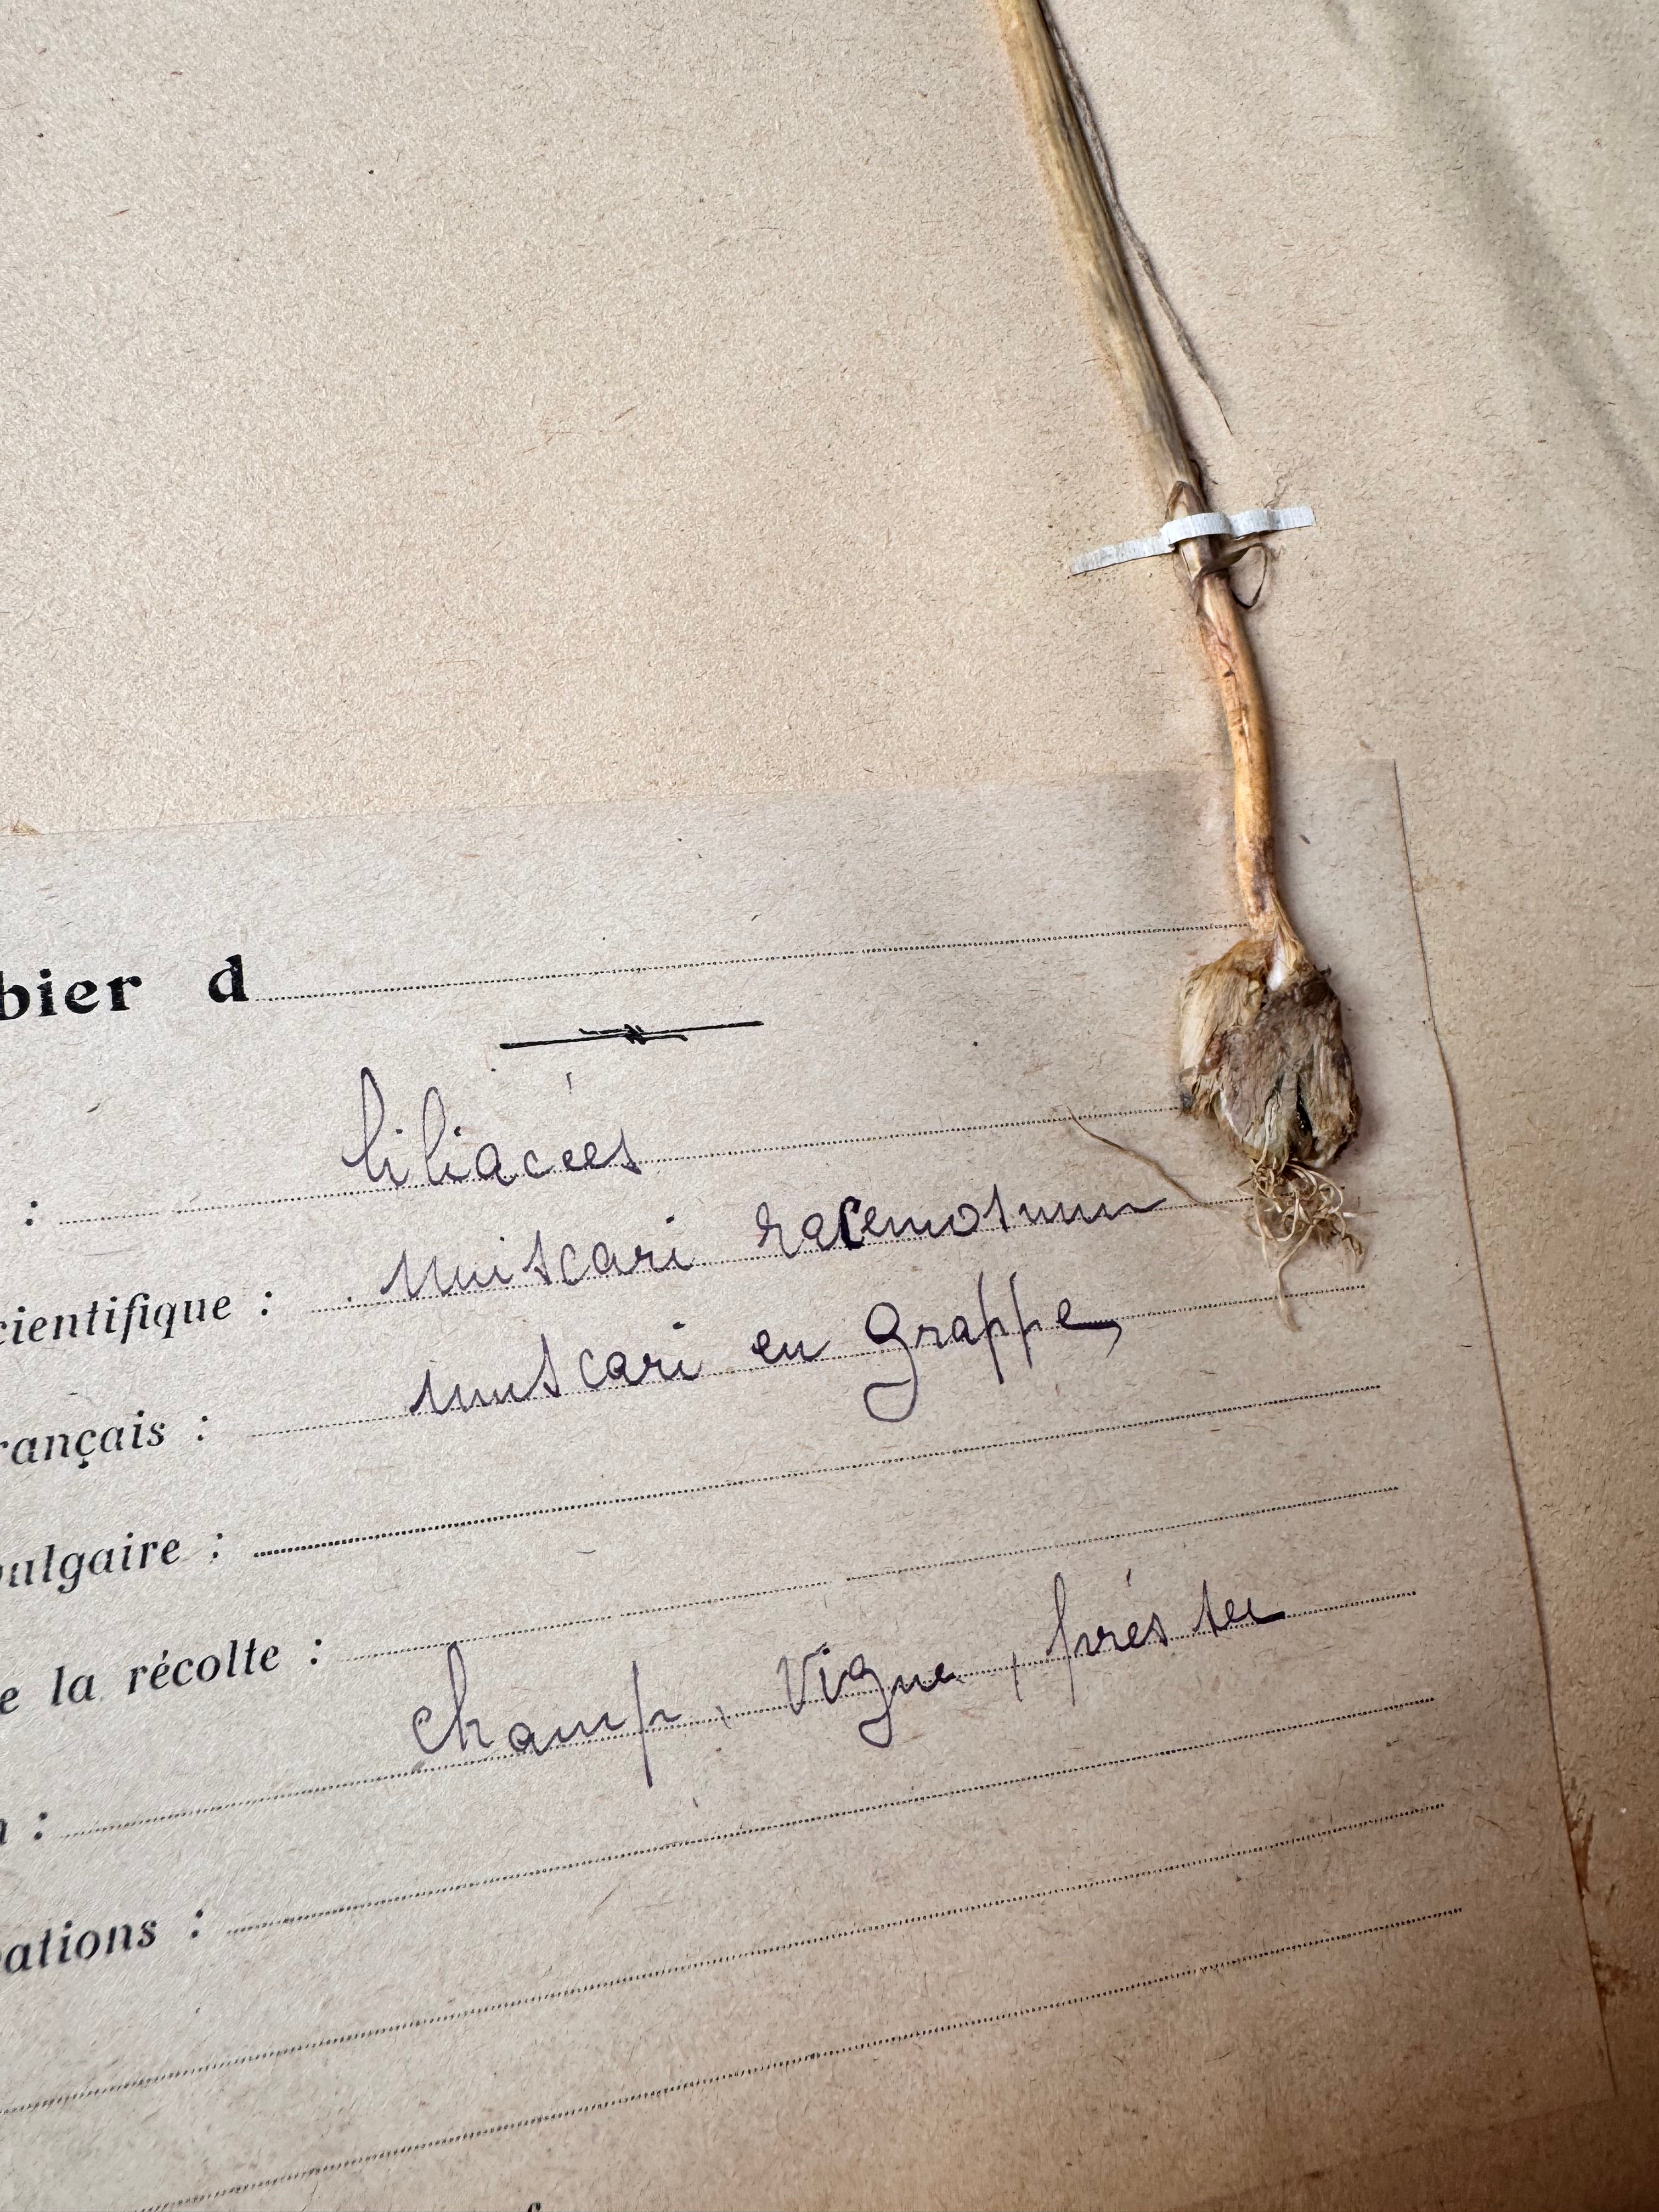 bier d
: liliacées
cientifique : muscari racemosum
rançais : muscari en grappe
vulgaire :
e la récolte :
n : champ, vigne, prés sec
ations :